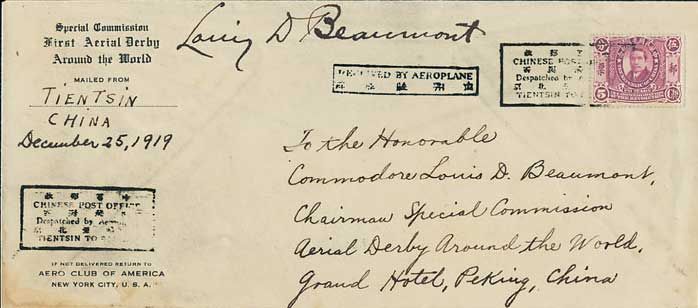 Special Commission
First Aerial Derby
Around the World
MAILED FROM
TIENTSIN
CHINA
December 25, 1919
Louis D Beaumont
BY AEROPLANE
CHINESE POST
Despatched by
TIENTSIN TO
5
5
To the Honorable
Commodore Louis D. Beaumont,
Chairman Special Commission
Aerial Derby Around the World,
Grand Hotel, Peking, China
CHINESE POST OFFICE
Despatched by
TIENTSIN TO
IF NOT DELIVERED RETURN TO
AERO CLUB OF AMERICA
NEW YORK CITY, U. S. A.